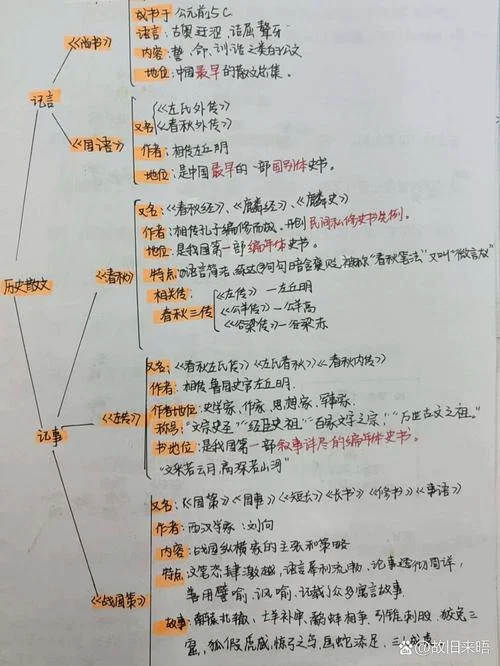 成书于公元前5C
语言：古奥迂涩，诘屈聱牙
《尚书》
内容：誓、命、训、诰之类的公文
地位：中国最早的散文总集。
记言
又名《左氏外传》
《春秋外传》
《国语》
作者：相传左丘明
地位：是中国最早的一部国别体史书。
又名：《春秋经》、《麟经》、《麟史》
作者：相传孔子编修而成。开创民间私修史书先例。
地位：是我国第一部编年体史书。
历史散文
《春秋》
特点：语言简洁，句句暗含褒贬，被称"春秋笔法"又叫"微言
相关传：
春秋三传
《左传》—左丘明
《公羊传》—公羊高
《谷梁传》—谷梁赤
又名：《春秋左氏传》《左氏春秋》《春秋内传》
作者：相传鲁国史官左丘明。
《左传》
作者地位：史学家、作家、思想家、军事家。
记事
称号："文宗史圣""经臣史祖""百家文字之宗""万世古文之祖。"
书地位：是我国第一部叙事详尽的编年体史书。
"文采若云月，高深若山河"
又名：《国策》《国事》《短长》《长书》《修书》《事语》
作者：西汉学家：刘向
内容：战国纵横家的主张和策略
《战国策》
特点：文笔恣肆激越，语言犀利流畅，论事透彻周详，
善用譬喻、讽喻，记载了众多寓言故事
故事：南辕北辙，亡羊补牢，鹬蚌相争，引锥刺股，狡兔三
窟，狐假虎威，惊弓之鸟，画蛇添足，三人成虎
头条 @故旧来唔